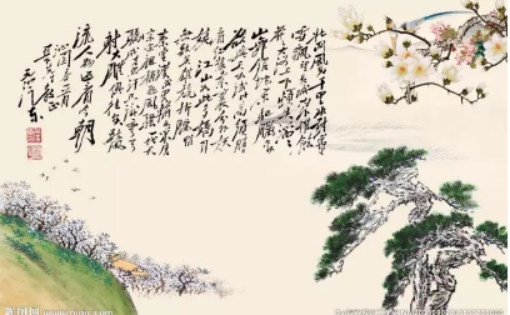 北国风光千里冰封万里
雪飘望长城内外惟余
莽莽大河上下顿失滔滔
山舞银蛇原驰腊象
欲与天公试比高须晴
日看红装素裹分外妖
娆江山如此多娇引
无数英雄竞折腰惜
秦皇汉武略输文采唐
宗宋祖稍逊风骚一代天
骄成吉思汗只识弯弓
射大雕俱往矣数风
流人物还看今朝
沁园春一首
毛泽东